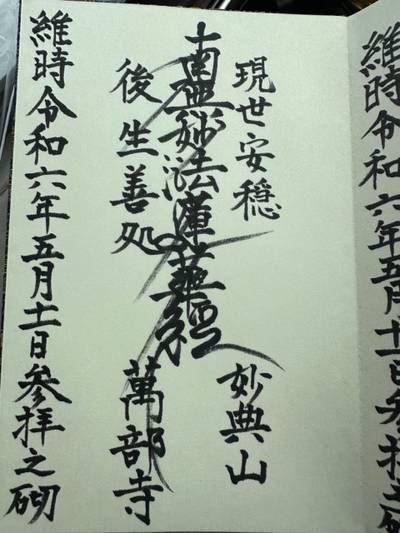 維時令和六年五月十一日參拝之砌
現世安穏
妙典山
南無妙法蓮華經
後生善処
萬部寺
維時令和六年五月十一日參拝之砌